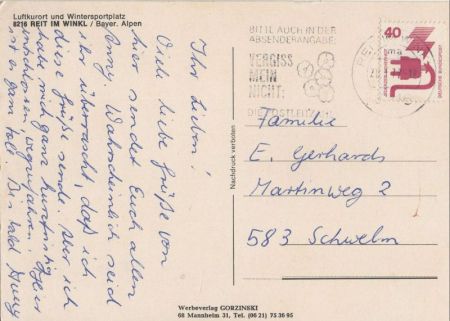 Luftkurort und Wintersportplatz
8216 REIT IM WINKL / Bayer. Alpen
Ihr Lieben!
Viele liebe Grüße von
hier sendet Euch allen
Anny. Wahrscheinlich seid
ihr überrascht, daß ich
diese Grüße sende. War ich
habe mich ganz kurzfristig
entschlossen wegzufahren. Hier
ist es ganz toll. Bis bald Anny
BITTE AUCH IN DER
ABSENDERANGABE:
VERGISS
MEIN
NICHT:
DIE POSTLEITZAHL
40
DEUTSCHE BUNDESPOST
Nachdruck verboten
Familie
E. Gerhards
Martinweg 2
583 Schwelm
Werbeverlag GORZINSKI
68 Mannheim 31, Tel. (06 21) 75 36 95